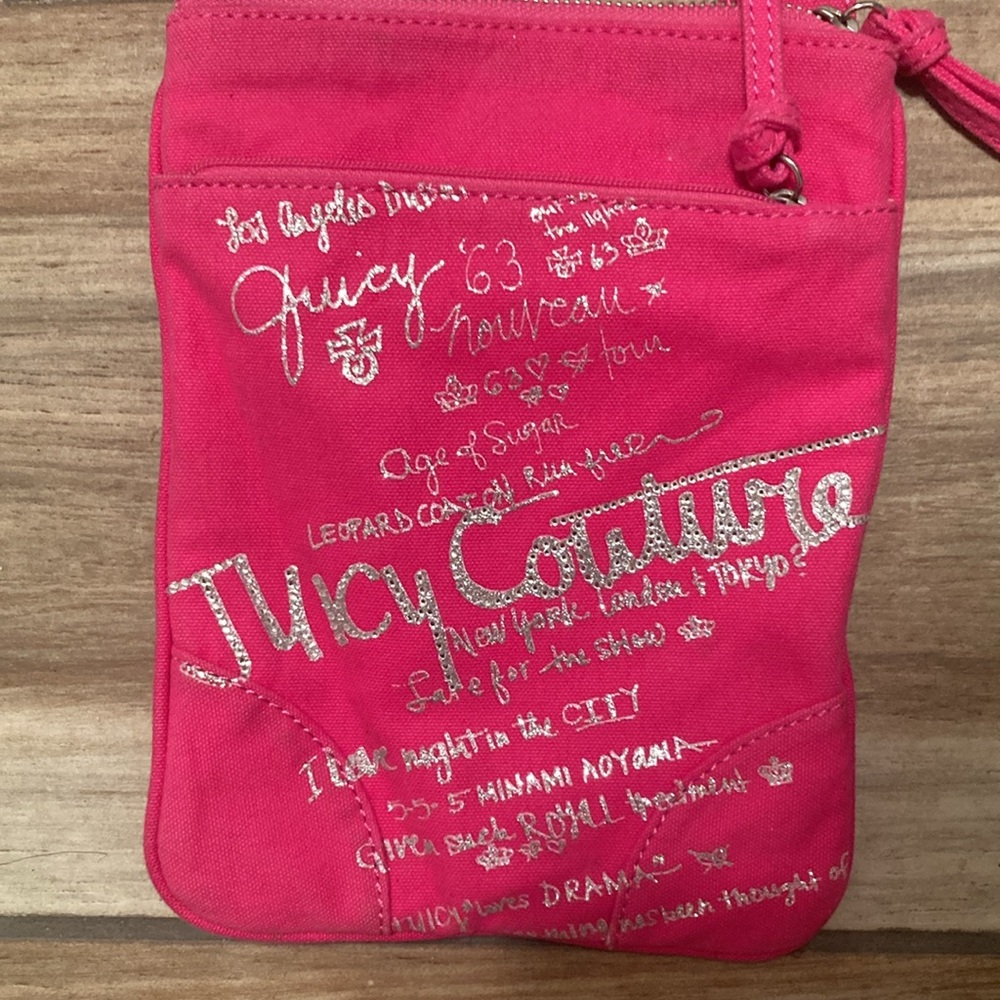 Los Angeles
our
the lights
Juicy '63
63
nouveau
63 tour
age of Sugar
LEOPARD COAT ON Run free
JUICY Couture
New York London & TOKYO?
Late for the show
I Love night in the CITY
5-5-5 MINAMI AOYAMA
Given such ROYAL treatment
JUICY loves DRAMA
has been thought of